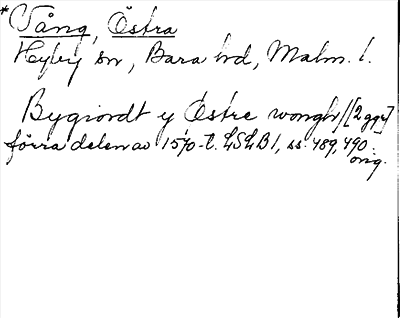 *Vång, Östra
Hyby sn, Bara hd, Malm. l.
Bygiordt y Östre wongh/[2 ggr]
förra delen av 1570-t. LSLB1, ss. 489, 490.
orig.